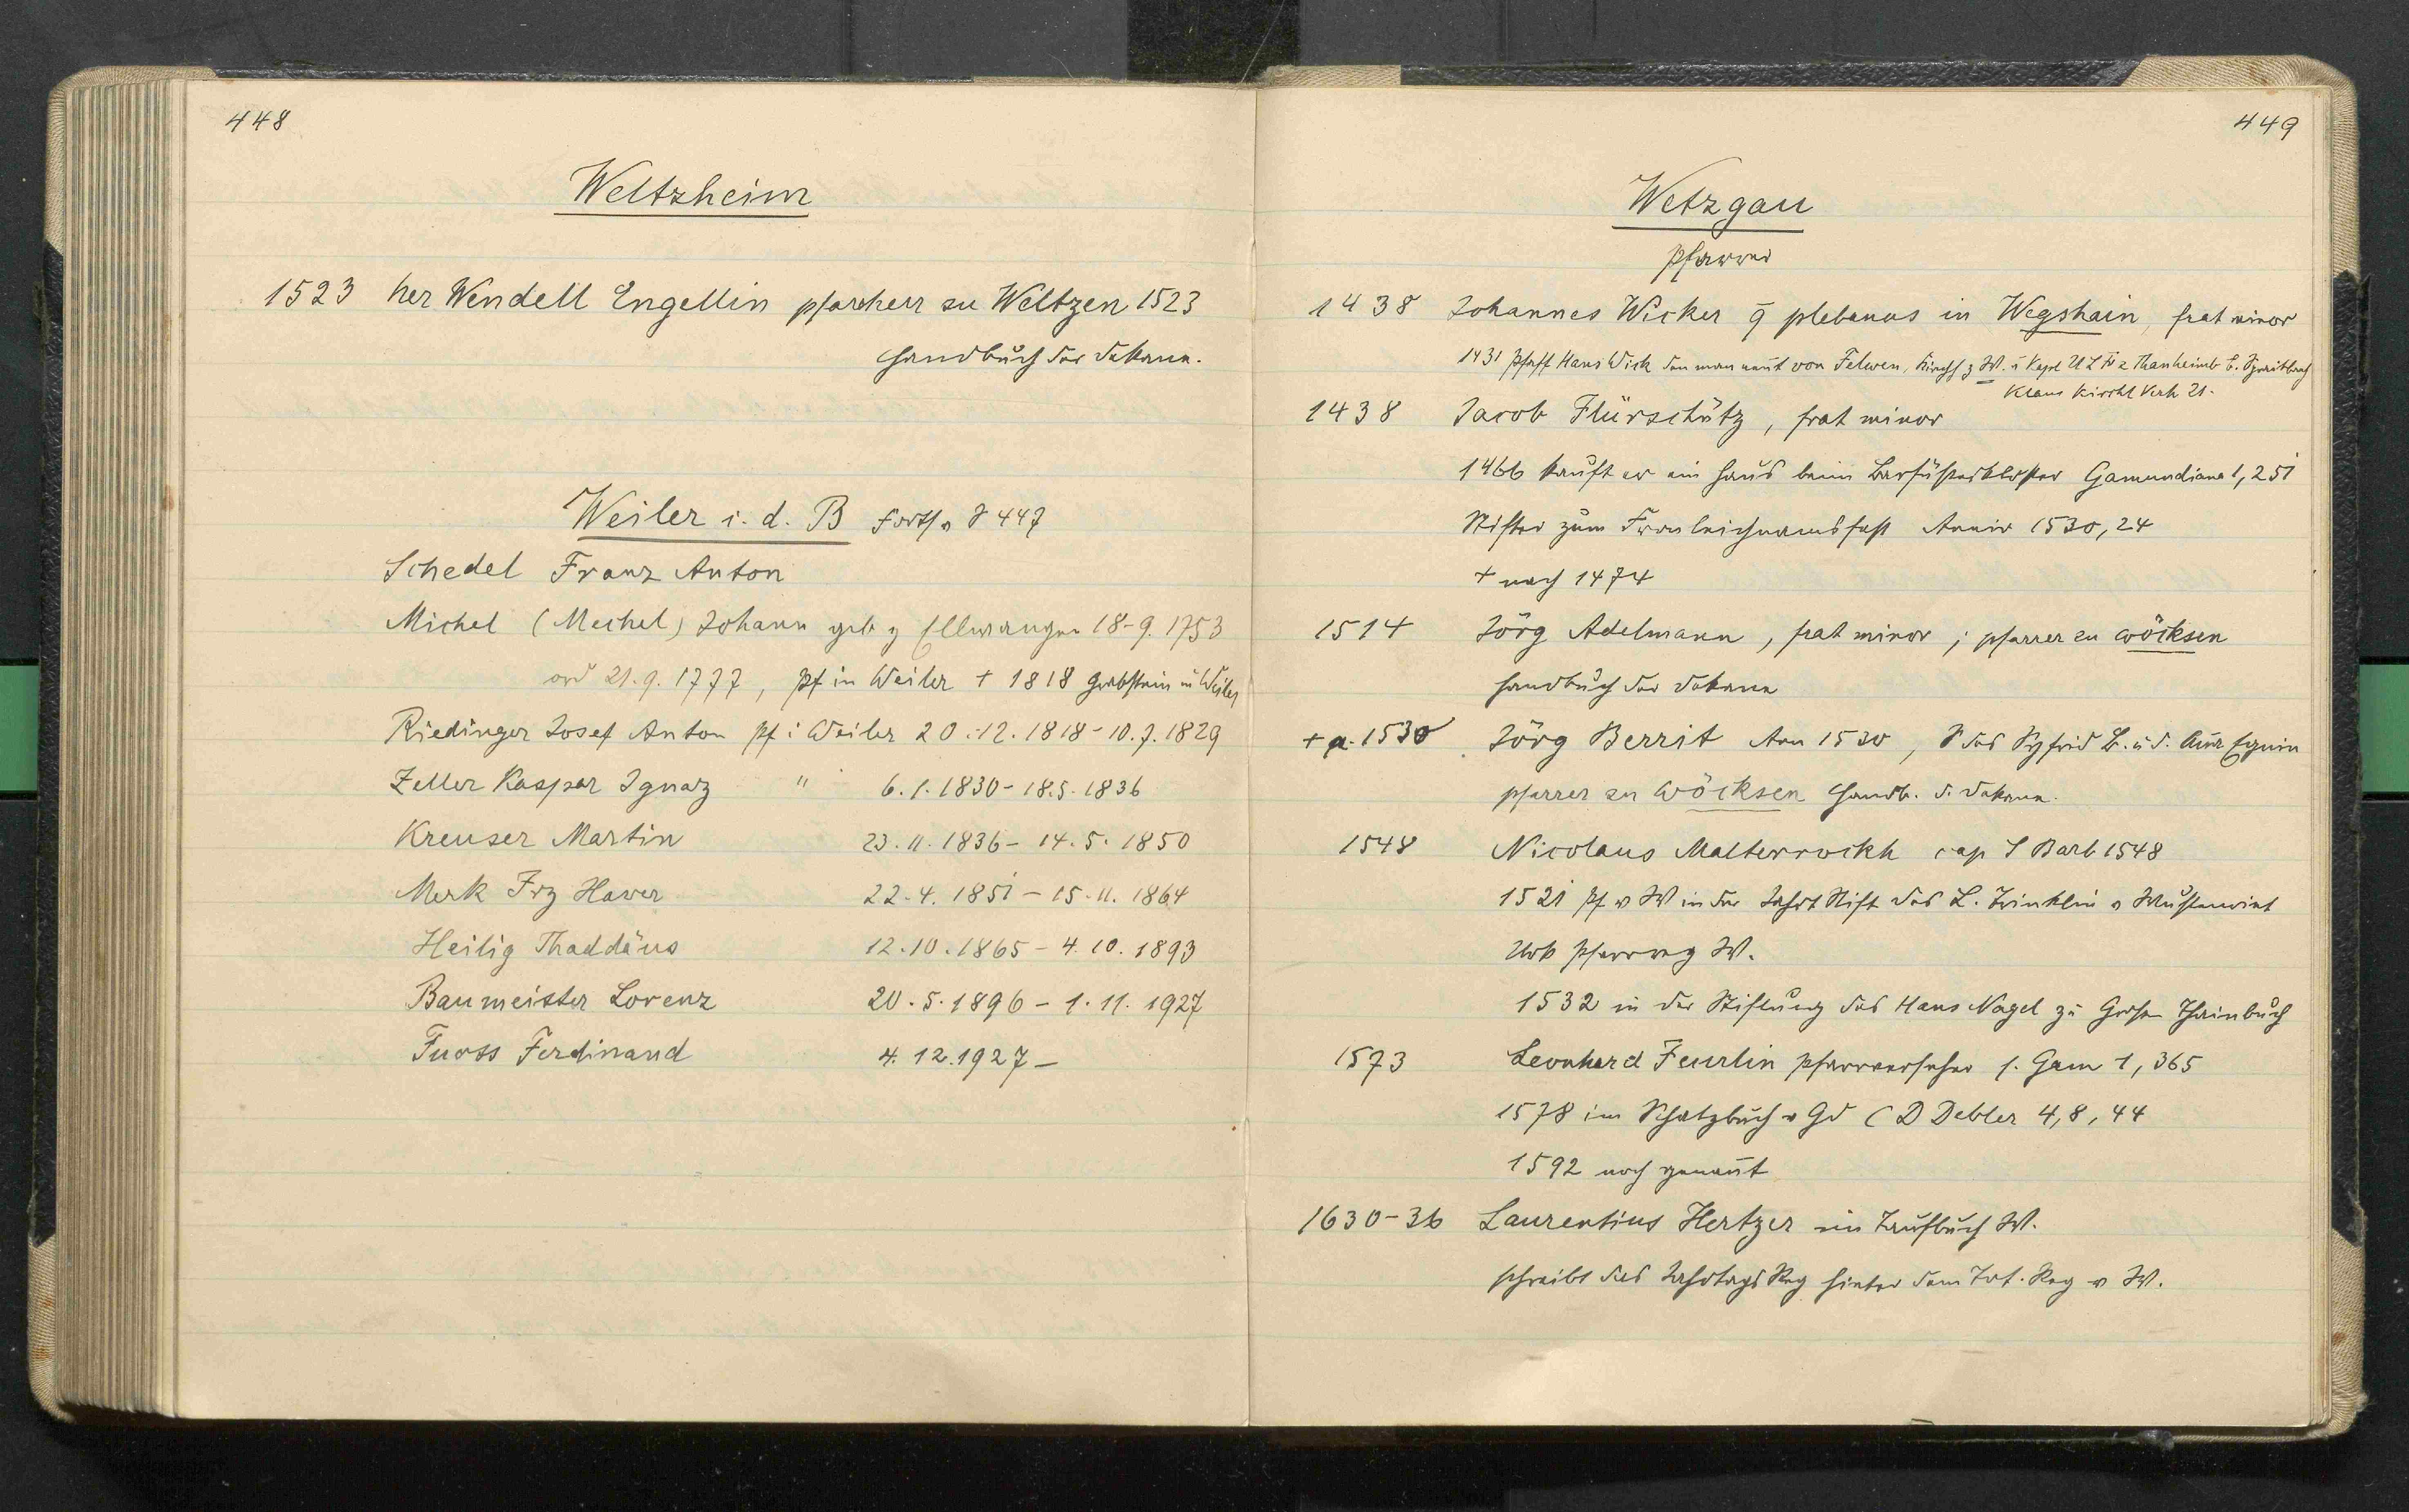 448
Weltzheim
1523 her Wendell Engellin pfarherr zu Weltzen 1523
Handbuch der Dekane.
Weiler i. d. B Forts. v S 447
Schedel Franz Anton
Michel (Mechel) Johann geb z Ellwangen 18-9. 1753
ord 21.9.1777, Pf in Weiler + 1818 Grabstein in Weiler
Riedinger Josef Anton Pf i Weiler 20.-12. 1818-10.7.1829
Zeller Kaspar Ignaz " 6.1.1830-18.5.1836
Kreuser Martin 23.11.1836-14.5.1850
Merk Frz Xaver 22.4.1851-15.11.1864
Heilig Thaddäus 12.10.1865-4.10.1893
Baumeister Lorenz 20.5.1896-1.11.1927
Fuoss Ferdinand 4.12.1927-
449
Wetzgau
Pfarrer
1438 Johannes Wicker plebanus in Wegshain, frat minor
1431 Pfaff Hans Wick den man nennt von Felwen, Kirchh z W. u Kapl z Thanheimb b. Spraitbach
Klaus Kirchl Verh 21.
1438 Jacob Flürschütz, frat minor
1466 kauft er ein Haus beim Barfüsserkloster Gamundiana 1,251
Stifter zum Fronleichnamsfest Anniv 1530, 24
+ nach 1474
1514 Jörg Adelmann, frat minor; pfarrer zu wöcksen
Handbuch der Dekane
+ a. 1530 Jörg Berrit Ann 1530, S des Syfrid B. u d. Anna
pfarrer zu Wöcksen Handb. d. Dekane.
1548 Nicolaus Malterrockh cap S Barb 1548
1521 Pf v W in der Jahrt Stift des L. Trinklin v Mustenriet
Urk Pfarreg W.
1532 in der Stiftung des Hans Nagel zu Grossen Thainbuch
1573 Leonhard Feurlin Pfarrverseher s. Gam 1, 365
1578 im Schatzbuch v Gd C D Debler 4,8,44
1592 noch genannt
1630-36 Laurentius Hertzer im Taufbuch W.
schreibt das Jahrtags Reg hinter dem Tot. Reg v W.